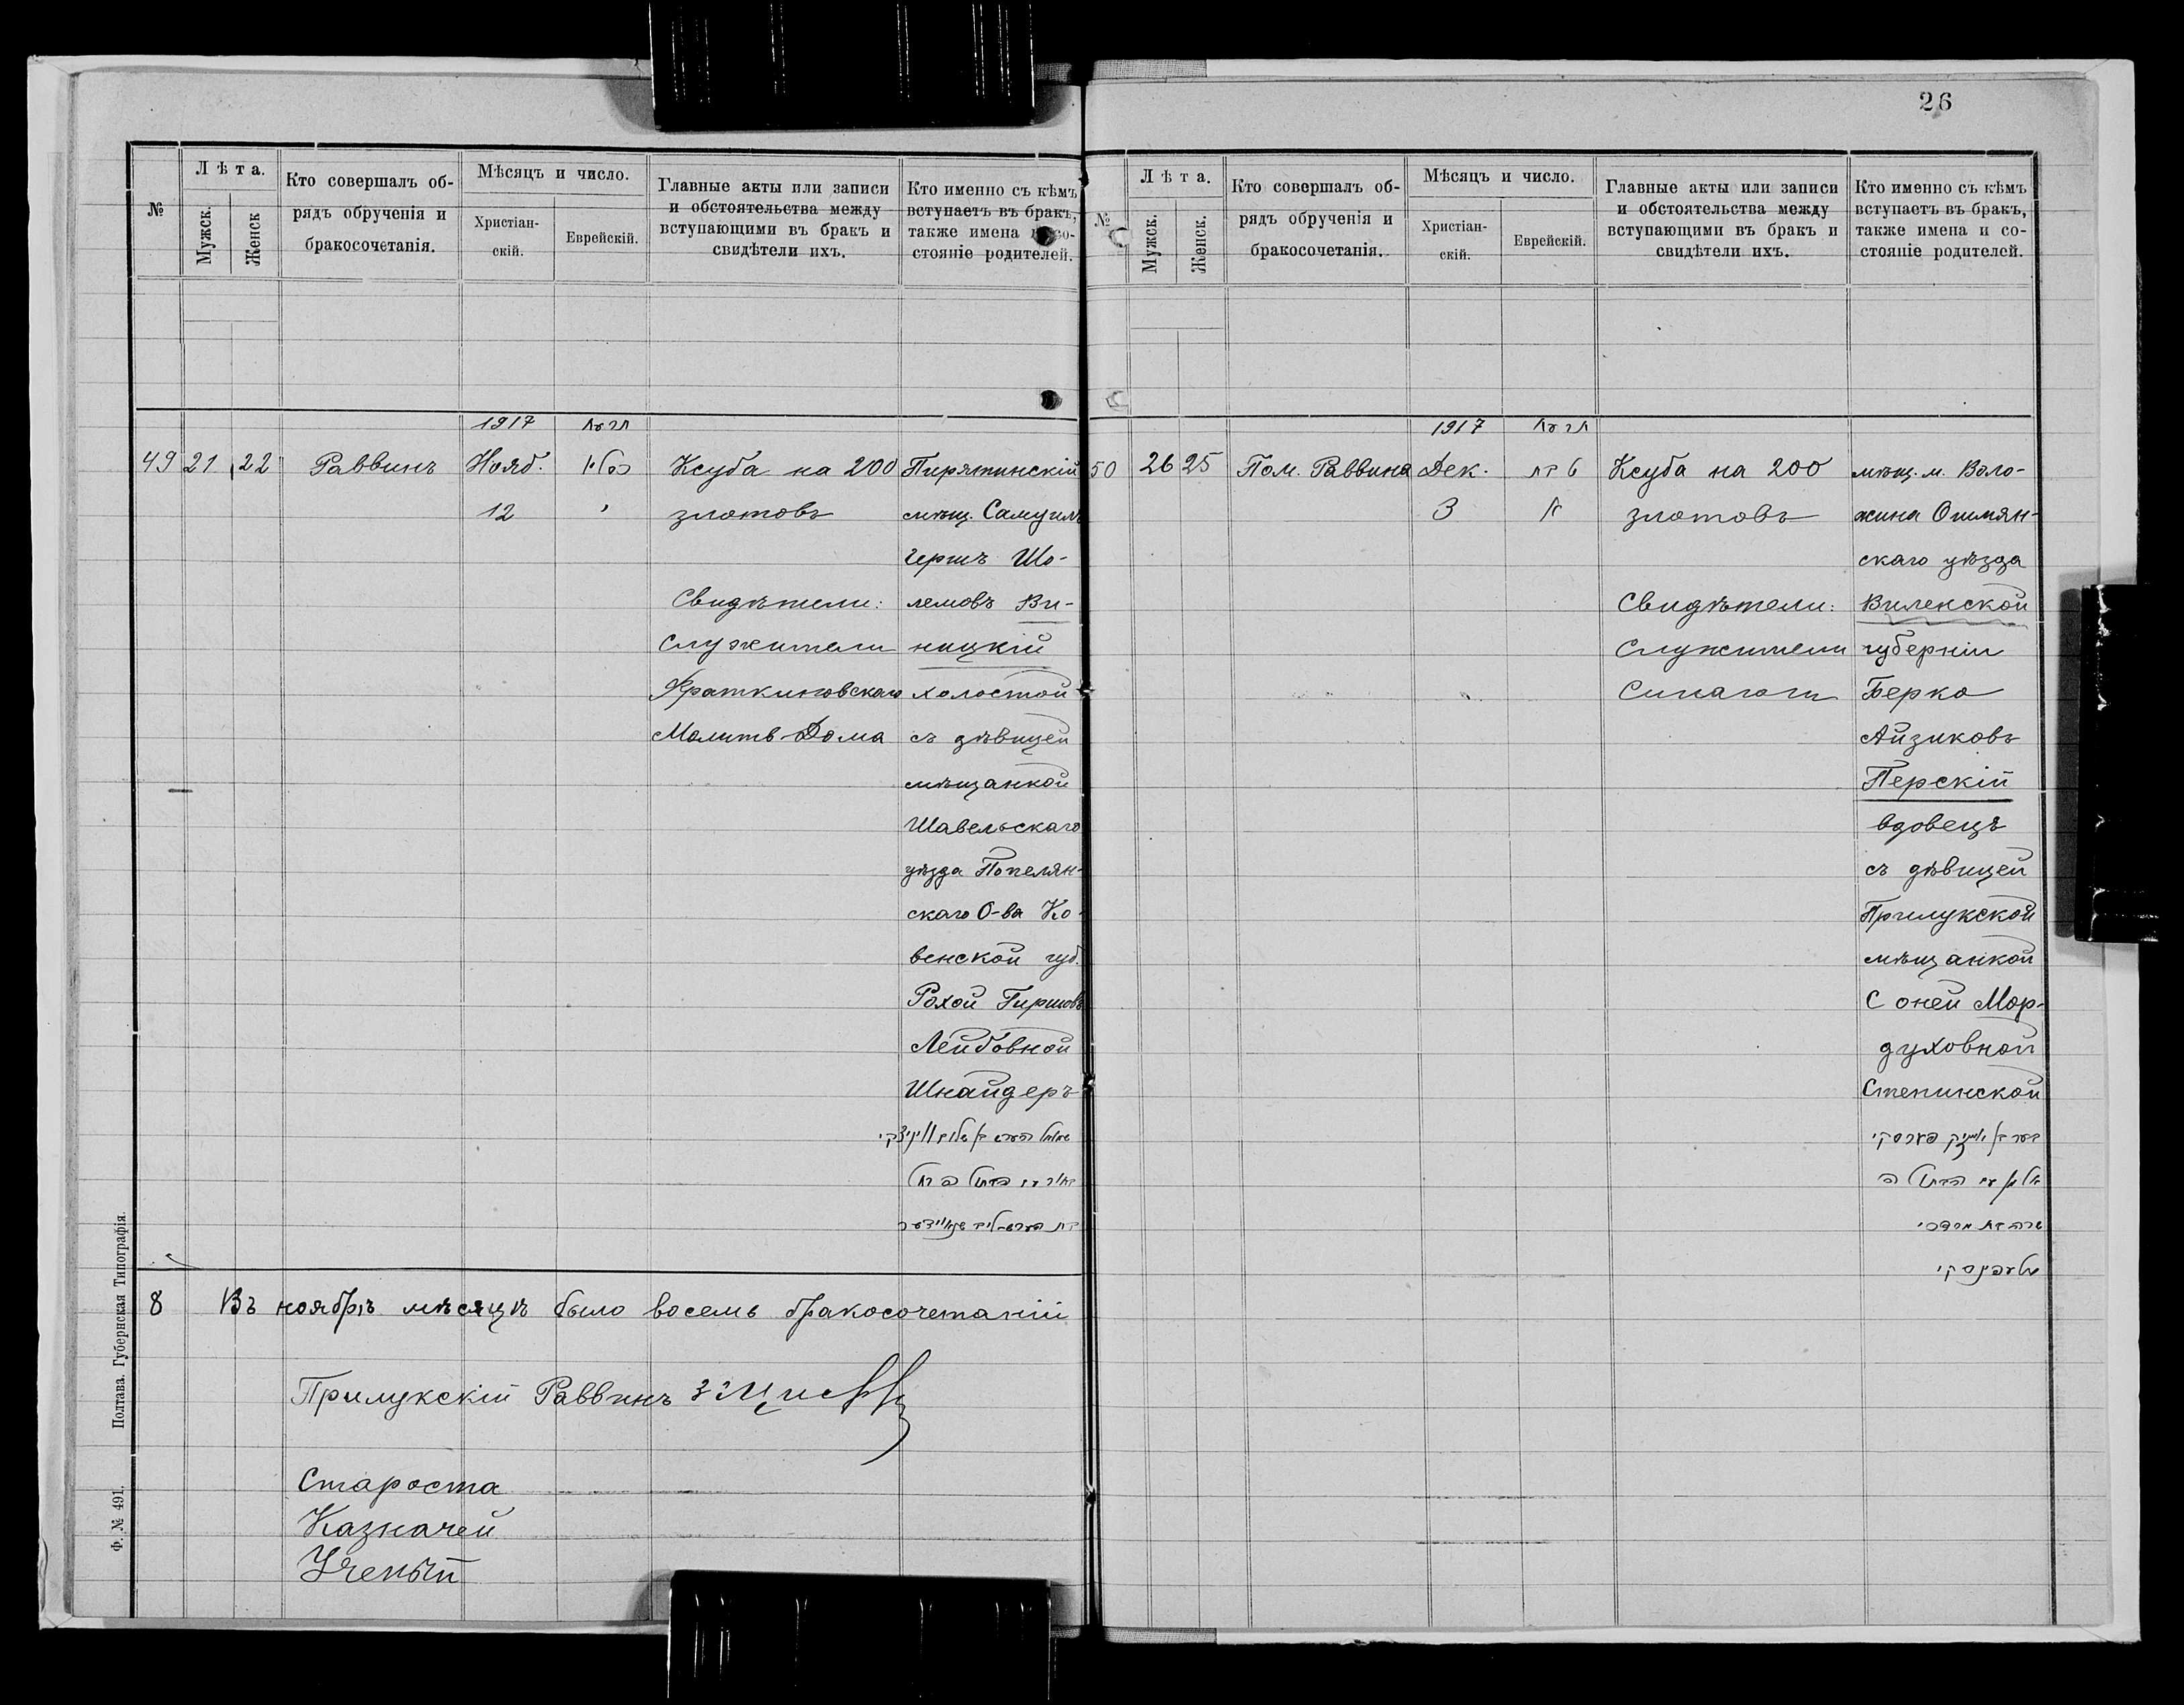 26
№
Лѣта.
Мужск.
Женск
Кто совершалъ об-
рядъ обрученія и
бракосочетанія.
Мѣсяцъ и число.
Христіан-
скій.
Еврейскій.
Главные акты или записи
и обстоятельства между
вступающими въ бракъ и
свидѣтели ихъ.
Кто именно съ кѣмъ
вступаетъ въ бракъ,
также имена и со-
стояніе родителей.
1917
49 21 22 Раввинъ Нояб. Ксуба на 200 Пирятинскій
12 злотовъ мѣщ. Самуилъ
Гершъ Шо-
Свидѣтели: лемовъ Ви-
Служители ницкій
Фраткиновскаго холостой
Молитв Дома съ дѣвицей
мѣщанкой
Шавельскаго
уѣзда Попелян-
скаго О-ва Ко-
венской губ.
Рохой Гиршовъ
Лейбовной
Шнайдеръ
8 Въ ноябрѣ мѣсяцѣ было восемь бракосочетаній
Прилукскій Раввинъ
Староста
Казначей
Ученый
Ф. № 491. Полтава. Губернская Типографія.
№
Лѣта.
Мужск.
Женск.
Кто совершалъ об-
рядъ обрученія и
бракосочетанія.
Мѣсяцъ и число.
Христіан-
скій.
Еврейскій.
Главные акты или записи
и обстоятельства между
вступающими въ бракъ и
свидѣтели ихъ.
Кто именно съ кѣмъ
вступаетъ въ бракъ,
также имена и со-
стояніе родителей.
1917
50 26 25 Пом. Раввина Дек. Ксуба на 200 мѣщ. м. Воло-
3 злотовъ жина Ошмян-
скаго уѣзда
Свидѣтели: Виленской
Служители губерніи
Синагоги Берко
Айзиковъ
Перскій
вдовецъ
съ дѣвицей
Прилукской
мѣщанкой
Соней Мор-
духовной
Степинской